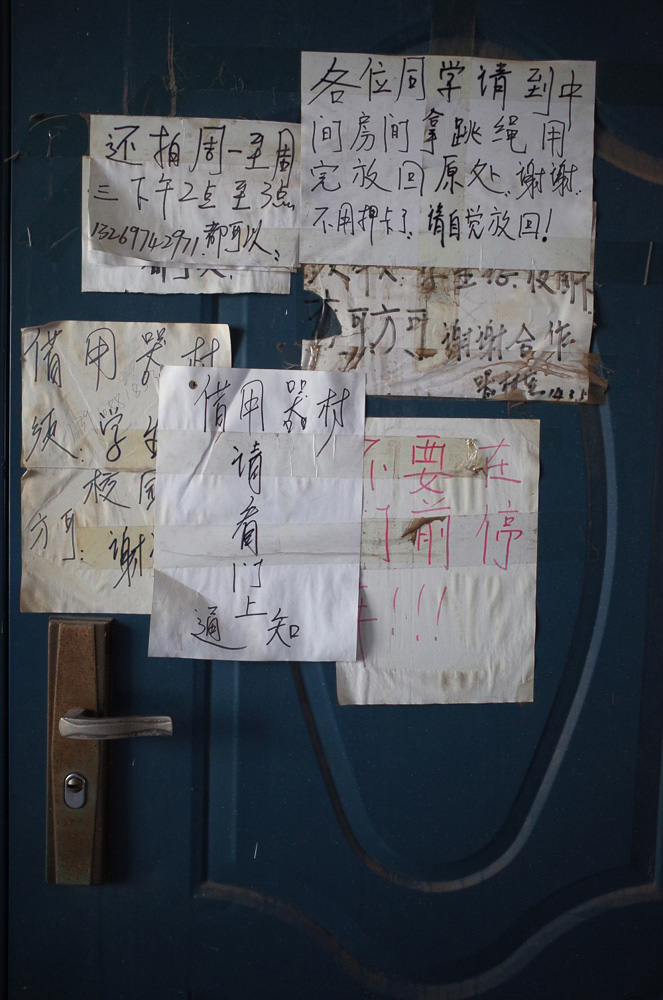 各位同学请到中
间房间拿跳绳用
完放回原处.谢谢.
不用押卡了.请自觉放回!
还拍周一至周
三下午2点至3点
13269742971.都可以.
方可方可 谢谢合作
器材室 14.3.5
借用器材
须.学生
校园
方可.谢
借用器材
请
看
门
上
通知
不要在
门前停
车!!!